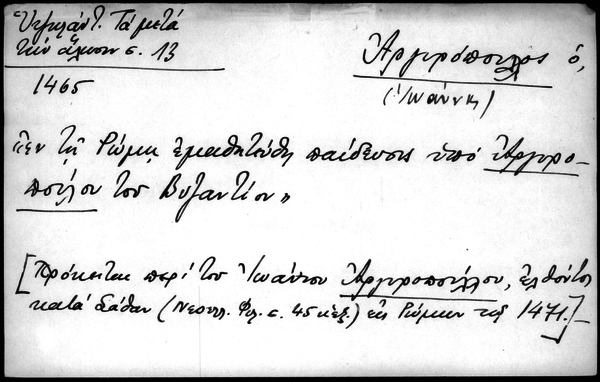 Ὑψηλάντ. Τὰ μετὰ
τὴν ἅλωσιν σ. 13
1465
Ἀργυρόπουλος ὁ,
(Ἰωάννης)
«ἐν τῇ Ρώμῃ ἐμαθητεύθη παίδευσις ὑπό Ἀργυρο-
πούλου τοῦ Βυζαντίου»
[Πρόκειται περί τοῦ Ἰωάννου Ἀργυροπούλου, ἐλθόντος
κατά Σάθαν (Νεοελλ. Φιλ. σ. 45 κἑξ.) εἰς Ρώμην τῷ 1471.]